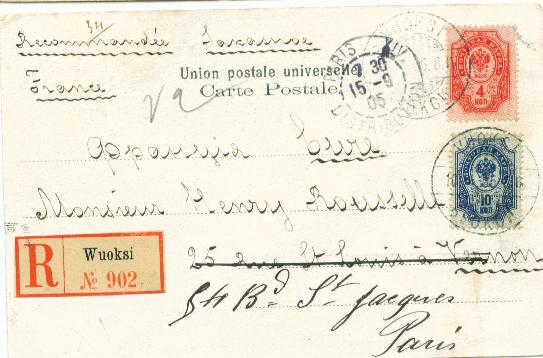 34
Recommandée Заказное
France
Union postale universelle
Carte Postale.
PARIS XIV
9 30
15-9
05
DISTRIBUTION
4
КОП
Франція Eure
Monsieur Henry Rousselle
10
КОП
R Wuoksi
№ 902
25 rue St Louis à Vernon
54 Bd St Jacques
Paris